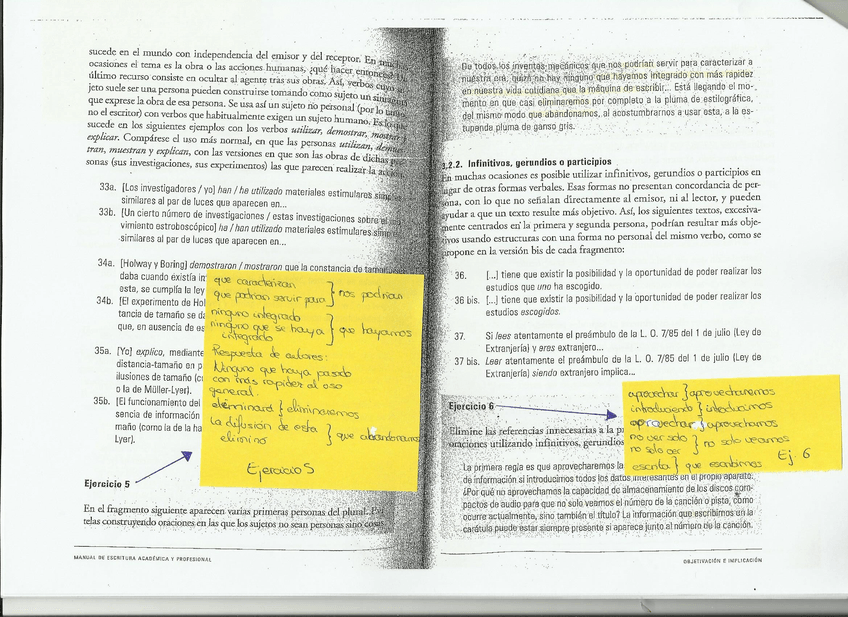 sucede en el mundo con independencia del emisor y del receptor. En muchas
ocasiones el tema es la obra o las acciones humanas, ¿qué hacer entonces? Un
último recurso consiste en ocultar al agente tras sus obras. Así, verbos cuyo su-
jeto suele ser una persona pueden construirse tomando como sujeto un sintagma
que exprese la obra de esa persona. Se usa así un sujeto no personal (por lo tanto
no el escritor) con verbos que habitualmente exigen un sujeto humano. Es lo que
sucede en los siguientes ejemplos con los verbos utilizar, demostrar, mostrar
explicar. Compárese el uso más normal, en que las personas utilizan, demues-
tran, muestran y explican, con las versiones en que son las obras de dichas per-
sonas (sus investigaciones, sus experimentos) las que parecen realizar la acción.
33a. [Los investigadores / yo] han / he utilizado materiales estimulares
similares al par de luces que aparecen en...
33b. [Un cierto número de investigaciones / estas investigaciones sobre el
vimiento estroboscópico] ha / han utilizado materiales estimulares
similares al par de luces que aparecen en...
34a. [Holway y Boring] demostraron / mostraron que la constancia de
daba cuando existía
esta, se cumplía la ley
34b. [El experimento de
tancia de tamaño se
que, en ausencia de
35a. [Yo] explico, mediante
distancia-tamaño en
ilusiones de tamaño
o la de Müller-Lyer).
35b. [El funcionamiento del
sencia de información
maño (como la de la
Lyer).
que caracterizan
que podrían servir para } nos podrían
ninguno integrado
ninguno que se haya } que hayamos
integrado
Respuesta de autores:
Ninguno que haya pasado
con más rapidez al uso
general.
eliminará } eliminaremos
La difusión de esta } que abandonamos
eliminó
Ejercicio 5
Ejercicio 5
En el fragmento siguiente aparecen varias primeras personas del plural.
telas construyendo oraciones en las que los sujetos no sean personas sino cosas.
MANUAL DE ESCRITURA ACADÉMICA Y PROFESIONAL
De todos los inventos mecánicos que nos podrían servir para caracterizar a
nuestra era, quizá no hay ninguno que hayamos integrado con más rapidez
en nuestra vida cotidiana que la máquina de escribir... Está llegando el mo-
mento en que casi eliminaremos por completo a la pluma de estilográfica,
del mismo modo que abandonamos, al acostumbrarnos a usar esta, a la es-
tupenda pluma de ganso gris.
3.2.2. Infinitivos, gerundios o participios
En muchas ocasiones es posible utilizar infinitivos, gerundios o participios en
lugar de otras formas verbales. Esas formas no presentan concordancia de per-
sona, con lo que no señalan directamente al emisor, ni al lector, y pueden
ayudar a que un texto resulte más objetivo. Así, los siguientes textos, excesiva-
mente centrados en la primera y segunda persona, podrían resultar más obje-
tivos usando estructuras con una forma no personal del mismo verbo, como se
propone en la versión bis de cada fragmento:
36. [...] tiene que existir la posibilidad y la oportunidad de poder realizar los
estudios que uno ha escogido.
36 bis. [...] tiene que existir la posibilidad y la oportunidad de poder realizar los
estudios escogidos.
37. Si lees atentamente el preámbulo de la L. O. 7/85 del 1 de julio (Ley de
Extranjería) y eres extranjero...
37 bis. Leer atentamente el preámbulo de la L. O. 7/85 del 1 de julio (Ley de
Extranjería) siendo extranjero implica...
Ejercicio 6
Elimine las referencias innecesarias a la
oraciones utilizando infinitivos, gerundios
aprovechar } aprovecharemos
introduciendo } introducimos
aprovechar } aprovechamos
no ver solo } no solo veamos
no solo ver
escrita } que escribimos
Ej. 6
La primera regla es que aprovecharemos la
de información si introducimos todos los datos interesantes en el propio aparato.
¿Por qué no aprovechamos la capacidad de almacenamiento de los discos com-
pactos de audio para que no solo veamos el número de la canción o pista, como
ocurre actualmente, sino también el título? La información que escribimos en la
carátula puede estar siempre presente si aparece junto al número de la canción.
OBJETIVACIÓN E IMPLICACIÓN